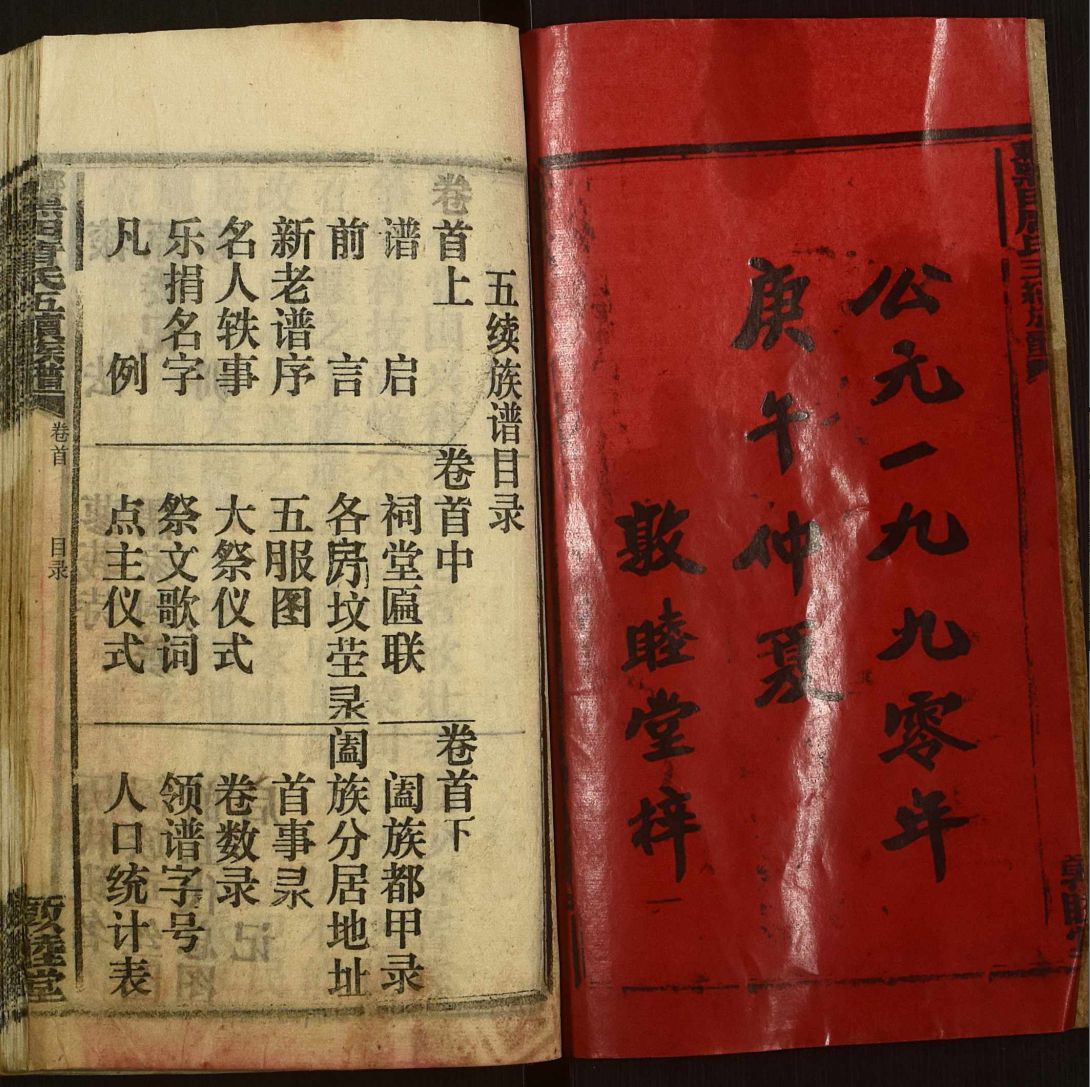 公元一九九零年
庚午仲夏
敦睦堂梓
五续族谱目录
卷首上
谱启
前言
新老谱序
名人轶事
乐捐名字
凡例
卷首中
祠堂匾联
各房坟茔录
五服图
大祭仪式
祭文歌词
点主仪式
卷首下
阖族都甲录
阖族分居地址
首事录
卷数录
领谱字号
人口统计表
卷首 目录
敦睦堂